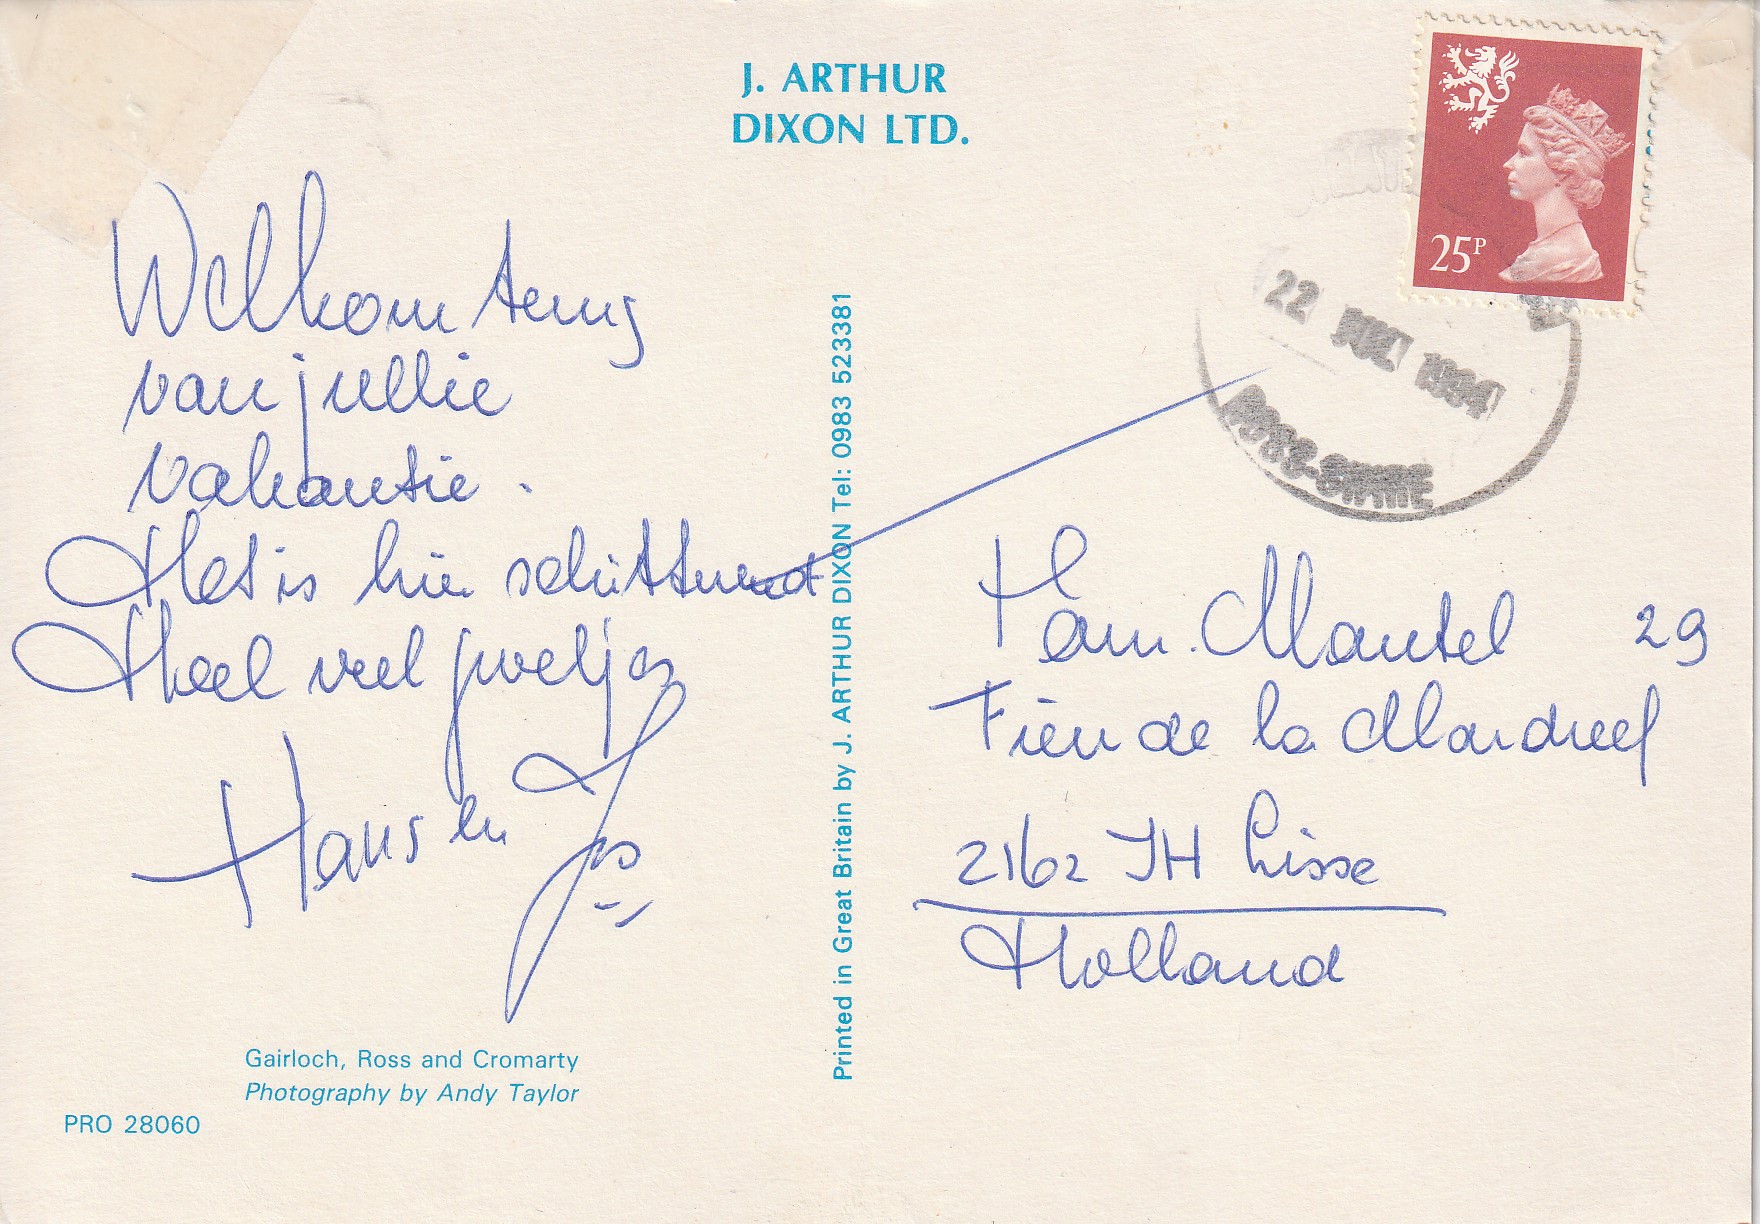 J. ARTHUR
DIXON LTD.
25P
22 JUL 1994
ROSS-SHIRE
Welkom terug
van jullie
vakantie.
Het is hier schitterend
Heel veel groetjes
Hans en Jos
Fam. Mantel 29
Fien de la Mardreef
2162 JH Lisse
Holland
Printed in Great Britain by J. ARTHUR DIXON Tel: 0983 523381
Gairloch, Ross and Cromarty
Photography by Andy Taylor
PRO 28060